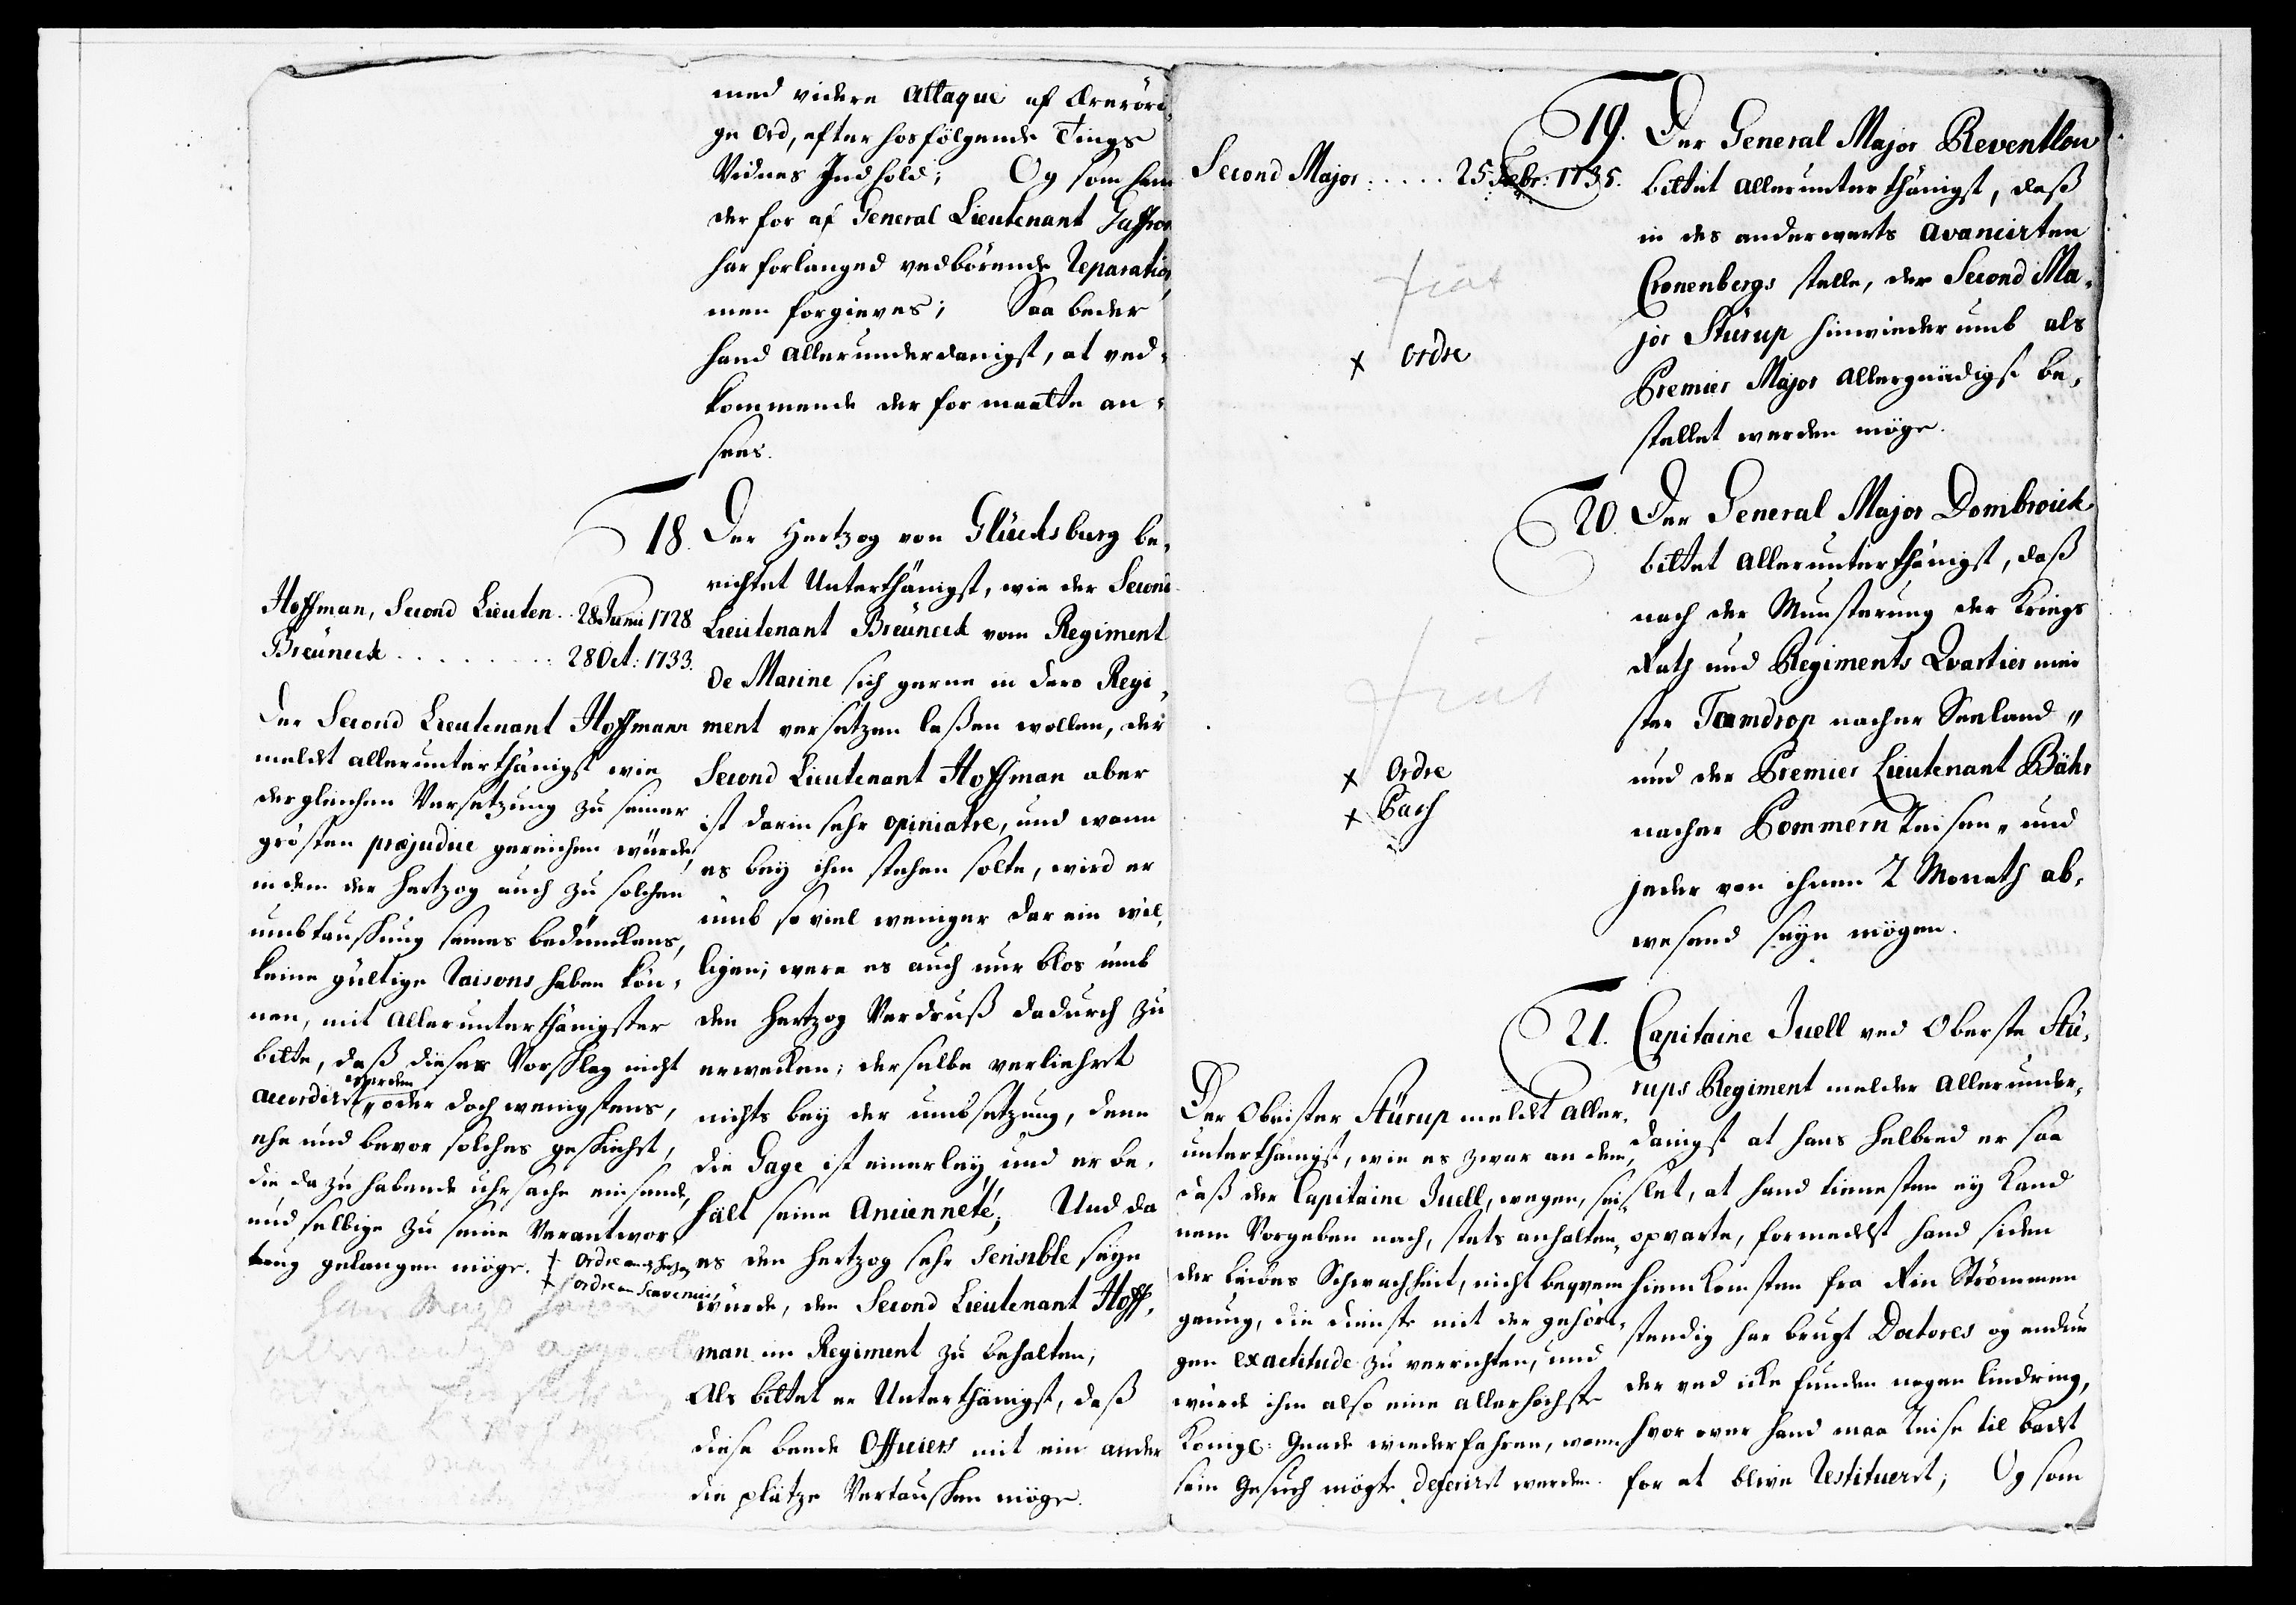 med videre Attaque af Æreröri,
ge Ord, efter hosfölgende Tings
Vidnes Indhold; Og som hand
der for af General Lieutenant Gaffron
har forlanged vedbörende Reparation
men forgieves; Saa beder
hand allerunderdanigst, at ved-
kommende der for maatte an-
sees.
18. Der Hertzog von Glücksburg be,
richtet Unterthänigst, wie der Second
Lieutenant Breuneck vom Regiment
de Marine sich gerne in dero Regi,
ment versetzen laßen wollen, der
Second Lieutenant Hoffman aber
ist darin sehr opiniatre, und wann
es bey ihm stehen solte, wird er
umb so viel weniger dar ein wil,
ligen; were es auch nur blos umb
den Hertzog Verdruß dadurch zu
erwecken; derselbe verliehrt
nichts bey der umbsetzung, denn
die Gage ist einerley, und er be,
hält seine Ancienneté; Und da
es den Hertzog sehr sensible seyn
würde, den Second Lieutenant Hoff,
man im Regiment zu behalten,
Als bittet er Unterthänigst, daß
diese beede Officiers mit ein ander
die plätze Vertauschen möge.
Hoffman, Second Lieuten. 28 Junii 1728
Breuneck . . . . . . . . 28 Oct: 1733.
Der Second Lieutenant Hoffmann
meldet allerunterthänigst wie
dergleichen Versetzung zu seiner
grösten præjudice gereichen würde,
indem der Hertzog auch zu solchen
umbtauschung seines bedünckens,
keine gültige raisons haben kön-
nen, mit allerunterthänigster
bitte, daß dieser Vorschlag nicht
accordiret werden, oder doch wenigstens,
ehe und bevor solches geschiehet,
die dazu habende uhrsache einsende,
und selbige zu seine Verantwor
tung gelangen möge. † Ordre an Hertzog
† Ordre an Scavenius
19. Der General Major Reventlow
bittet allerunterthänigst, daß
in des anderwerts avancirten
Cronenbergs stelle, der Second Ma,
jor Stürup hinwiederumb als
Premier Major allergnädigst be,
stellet werden möge.
Second Major . . . . . 25 Febr: 1735.
fiat
x Ordre
20. Der General Major Dombroick
bittet allerunterthänigst, daß
nach der Munsterung der Kriegs
Rath und Regiments Qvartier mei
ster Tamdrop nacher Seeland,,
und der Premier Lieutenant Bähr
nacher Pommern reisen,, und
jeder von ihnen 2 Monath ab,
wesend seyn mögen.
fiat
x Ordre
x Pass
21. Capitaine Juell ved Oberste Stü,
rups Regiment melder allerunder,
danigst at hans helbred er saa
slet, at hand tienesten ey kand
opvarte, formedelst hand siden
hiemkomsten fra Rin Strömmen
stendig har brugt Doctores og andre
der ved icke funden nogen lindring,
hvor over hand maa reise til badet
for at blive restitueret; Og som
Der Obrister Stürup meldet aller,
unterthänigst, wie es zwar an dem,
daß der Capitaine Juell, wegen, sei
nem Vorgeben nach, stets anhalten,
der Leibes Schwachheit, nicht beqvem
genug, die dienste mit der gehöri,
gen exactitude zu verrichten, und
würde ihm also eine allerhöchste
Königl: Gnade wiederfahren, wann
sein Gesuch mögte deferiret werden.